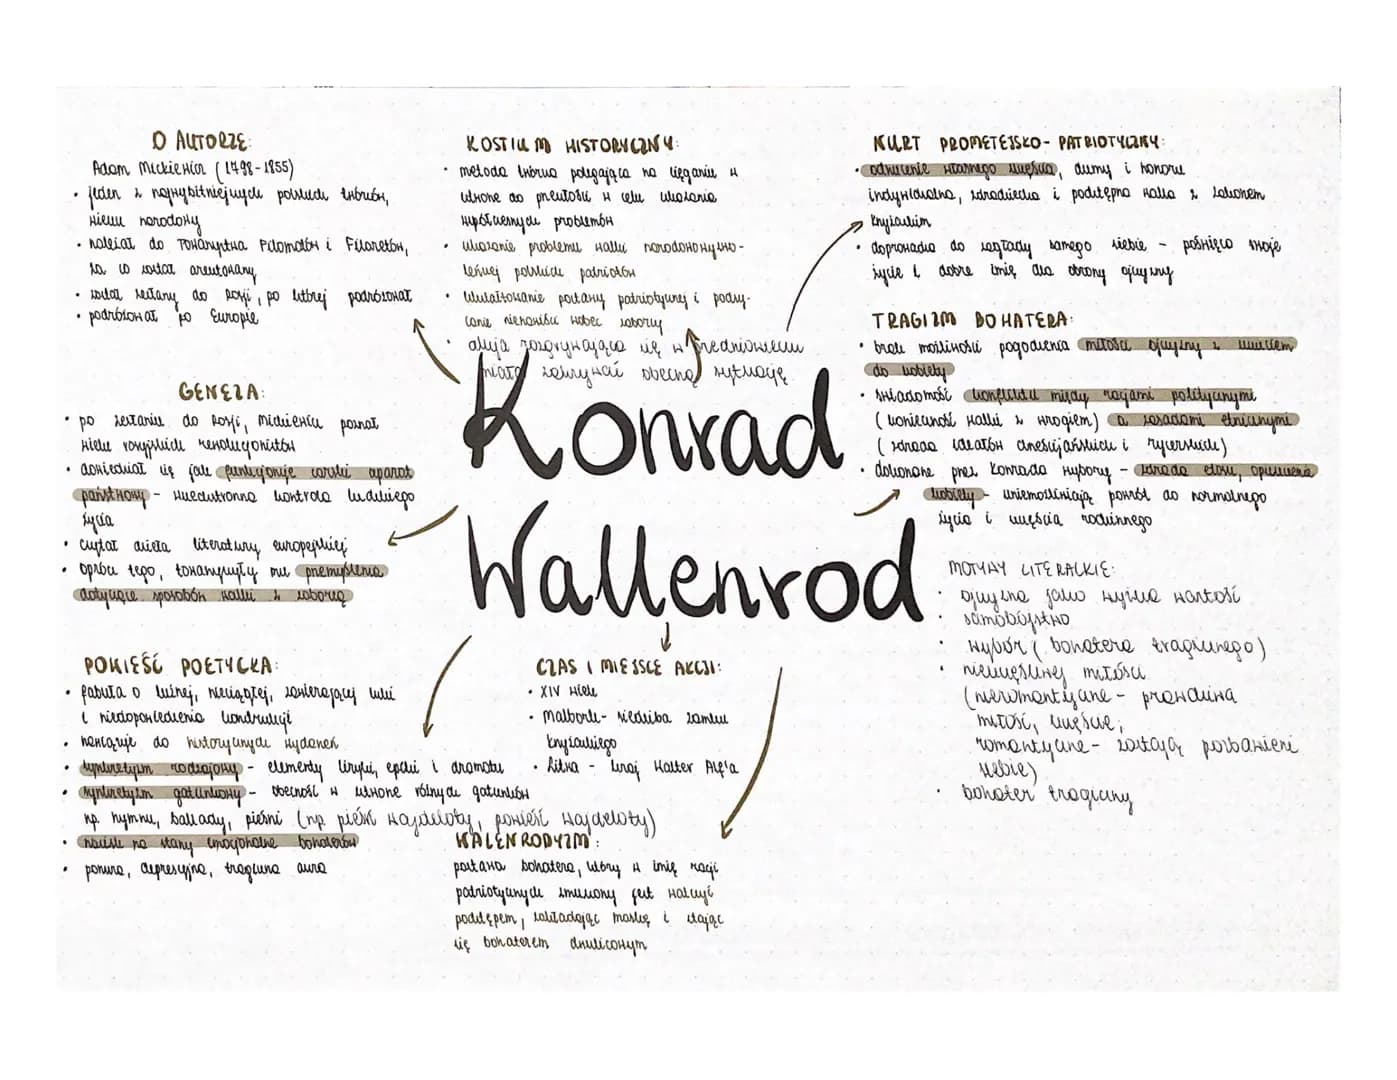 O AUTORZE:
Adam Mickiewicz (1798-1855)
• jeden z najwybitniejszych polskich twórców,
wieszcz narodowy
• należał do Towarzystwa Filomatów i Filaretów,
za co został aresztowany
• został zesłany do Rosji, po której podróżował
• podróżował po Europie
GENEZA:
• po zesłaniu do Rosji, Mickiewicz poznał
wielu rosyjskich rewolucjonistów
• dowiedział się jak funkcjonuje carski aparat
państwowy - wszechstronna kontrola ludzkiego
życia
• czytał dzieła literatury europejskiej
• oprócz tego, towarzyszyły mu przemyślenia
dotyczące sposobów walki z zaborcą
POWIEŚĆ POETYCKA:
• fabuła o luźnej, nieciągłej, zawierającej luki
i niedopowiedzenia konstrukcji
• nawiązuje do historycznych wydarzeń
• synkretyzm rodzajowy - elementy liryki, epiki i dramatu
• synkretyzm gatunkowy - obecność w utworze różnych gatunków
np. hymnu, ballady, pieśni (np. pieśń Wajdeloty, powieść Wajdeloty)
• nacisk na stany emocjonalne bohaterów
• ponura, depresyjna, tragiczna aura
KOSTIUM HISTORYCZNY:
• metoda twórcza polegająca na sięganiu w
utworze do przeszłości w celu ukazania
współczesnych problemów
• ukazanie problemu walki narodowowyzwo-
leńczej polskich patriotów
• kształtowanie postawy patriotycznej i podsy-
canie nienawiści wobec zaborcy
• akcja rozgrywająca się w średniowieczu
miała zakrywać obecną sytuację
Konrad
Wallenrod
CZAS I MIEJSCE AKCJI:
• XIV wiek
• Malbork - siedziba zamku
krzyżackiego
• Litwa - kraj Walter Alf'a
WALENRODYZM:
postawa bohatera, który w imię racji
patriotycznych zmuszony jest walczyć
podstępem, zakładając maskę i stając
się bohaterem dwulicowym
NURT PROMETEJSKO-PATRIOTYCZNY:
• odrzucenie własnego szczęścia, dumy i honoru
indywidualna, zdradziecka i podstępna walka z zakonem
krzyżackim
• doprowadza do zagłady samego siebie - poświęca swoje
życie i dobre imię dla obrony ojczyzny
TRAGIZM BOHATERA:
• brak możliwości pogodzenia miłości ojczyzny z uczuciem
do kobiety
• świadomość konfliktu między racjami politycznymi
(konieczność walki z wrogiem) a zasadami etnicznymi
(zdrada ideałów chrześcijańskich i rycerskich)
• dokonane przez Konrada wybory - zdrada etosu, opuszczenie
kobiety - uniemożliwiają powrót do normalnego
życia i szczęścia rodzinnego
MOTYWY LITERACKIE:
• ojczyzna jako wyższa wartość
• samobójstwo
• wybór (bohatera tragicznego)
• nieszczęśliwej miłości
(nieromantyczne - prawdziwa
miłość, szczęście;
romantyczne - zostają pozbawieni
siebie)
• bohater tragiczny